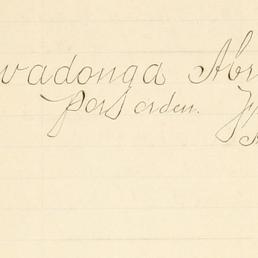 vadonga Abr
por orden.